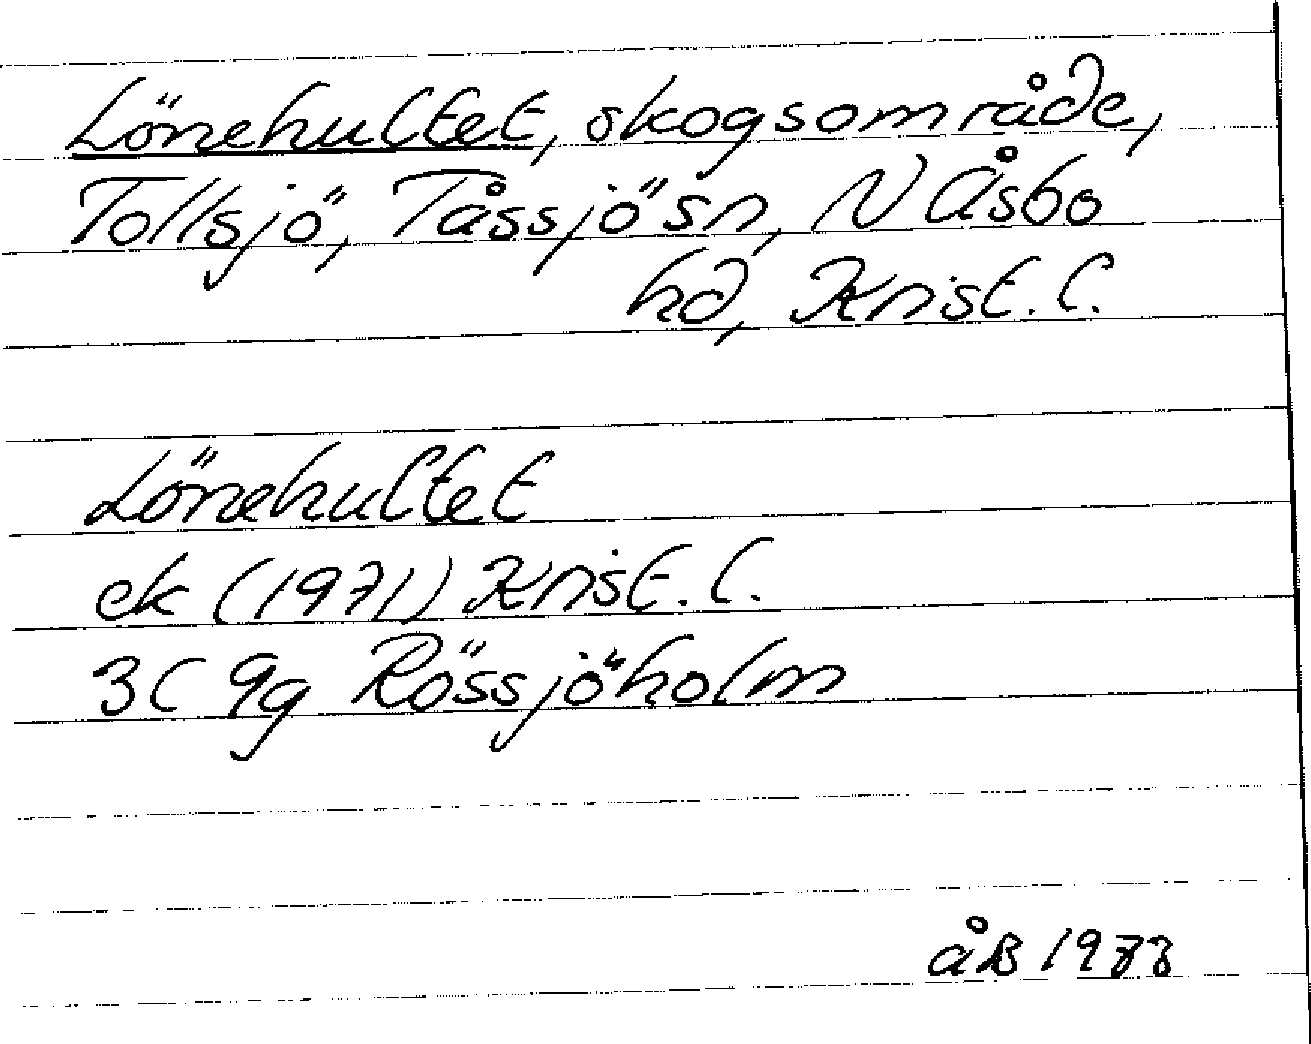 Lönehultet, skogsområde,
Tollsjö, Tåssjö sn, N Åsbo
hd, Krist. l.
Lönehultet
ek (1971) Krist. l.
3C 9g Rössjöholm
åB 1988